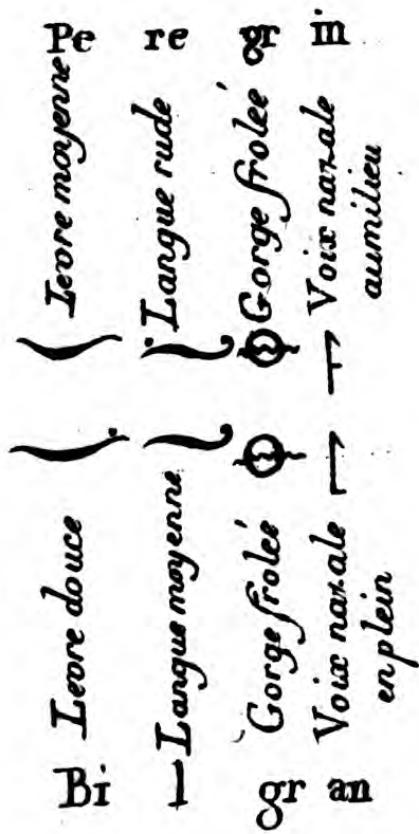 Pe re gr in
Levre moyenne
Langue rude
Gorge frolée
Voix nazale
aumilieu
Levre douce
Langue moyenne
Gorge frolée
Voix nazale
enplein
Bi l gr an